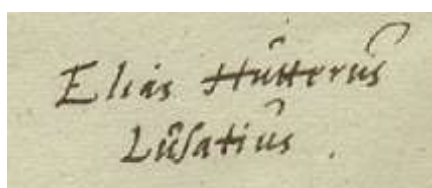 Elias Hutterus
Lusatius .